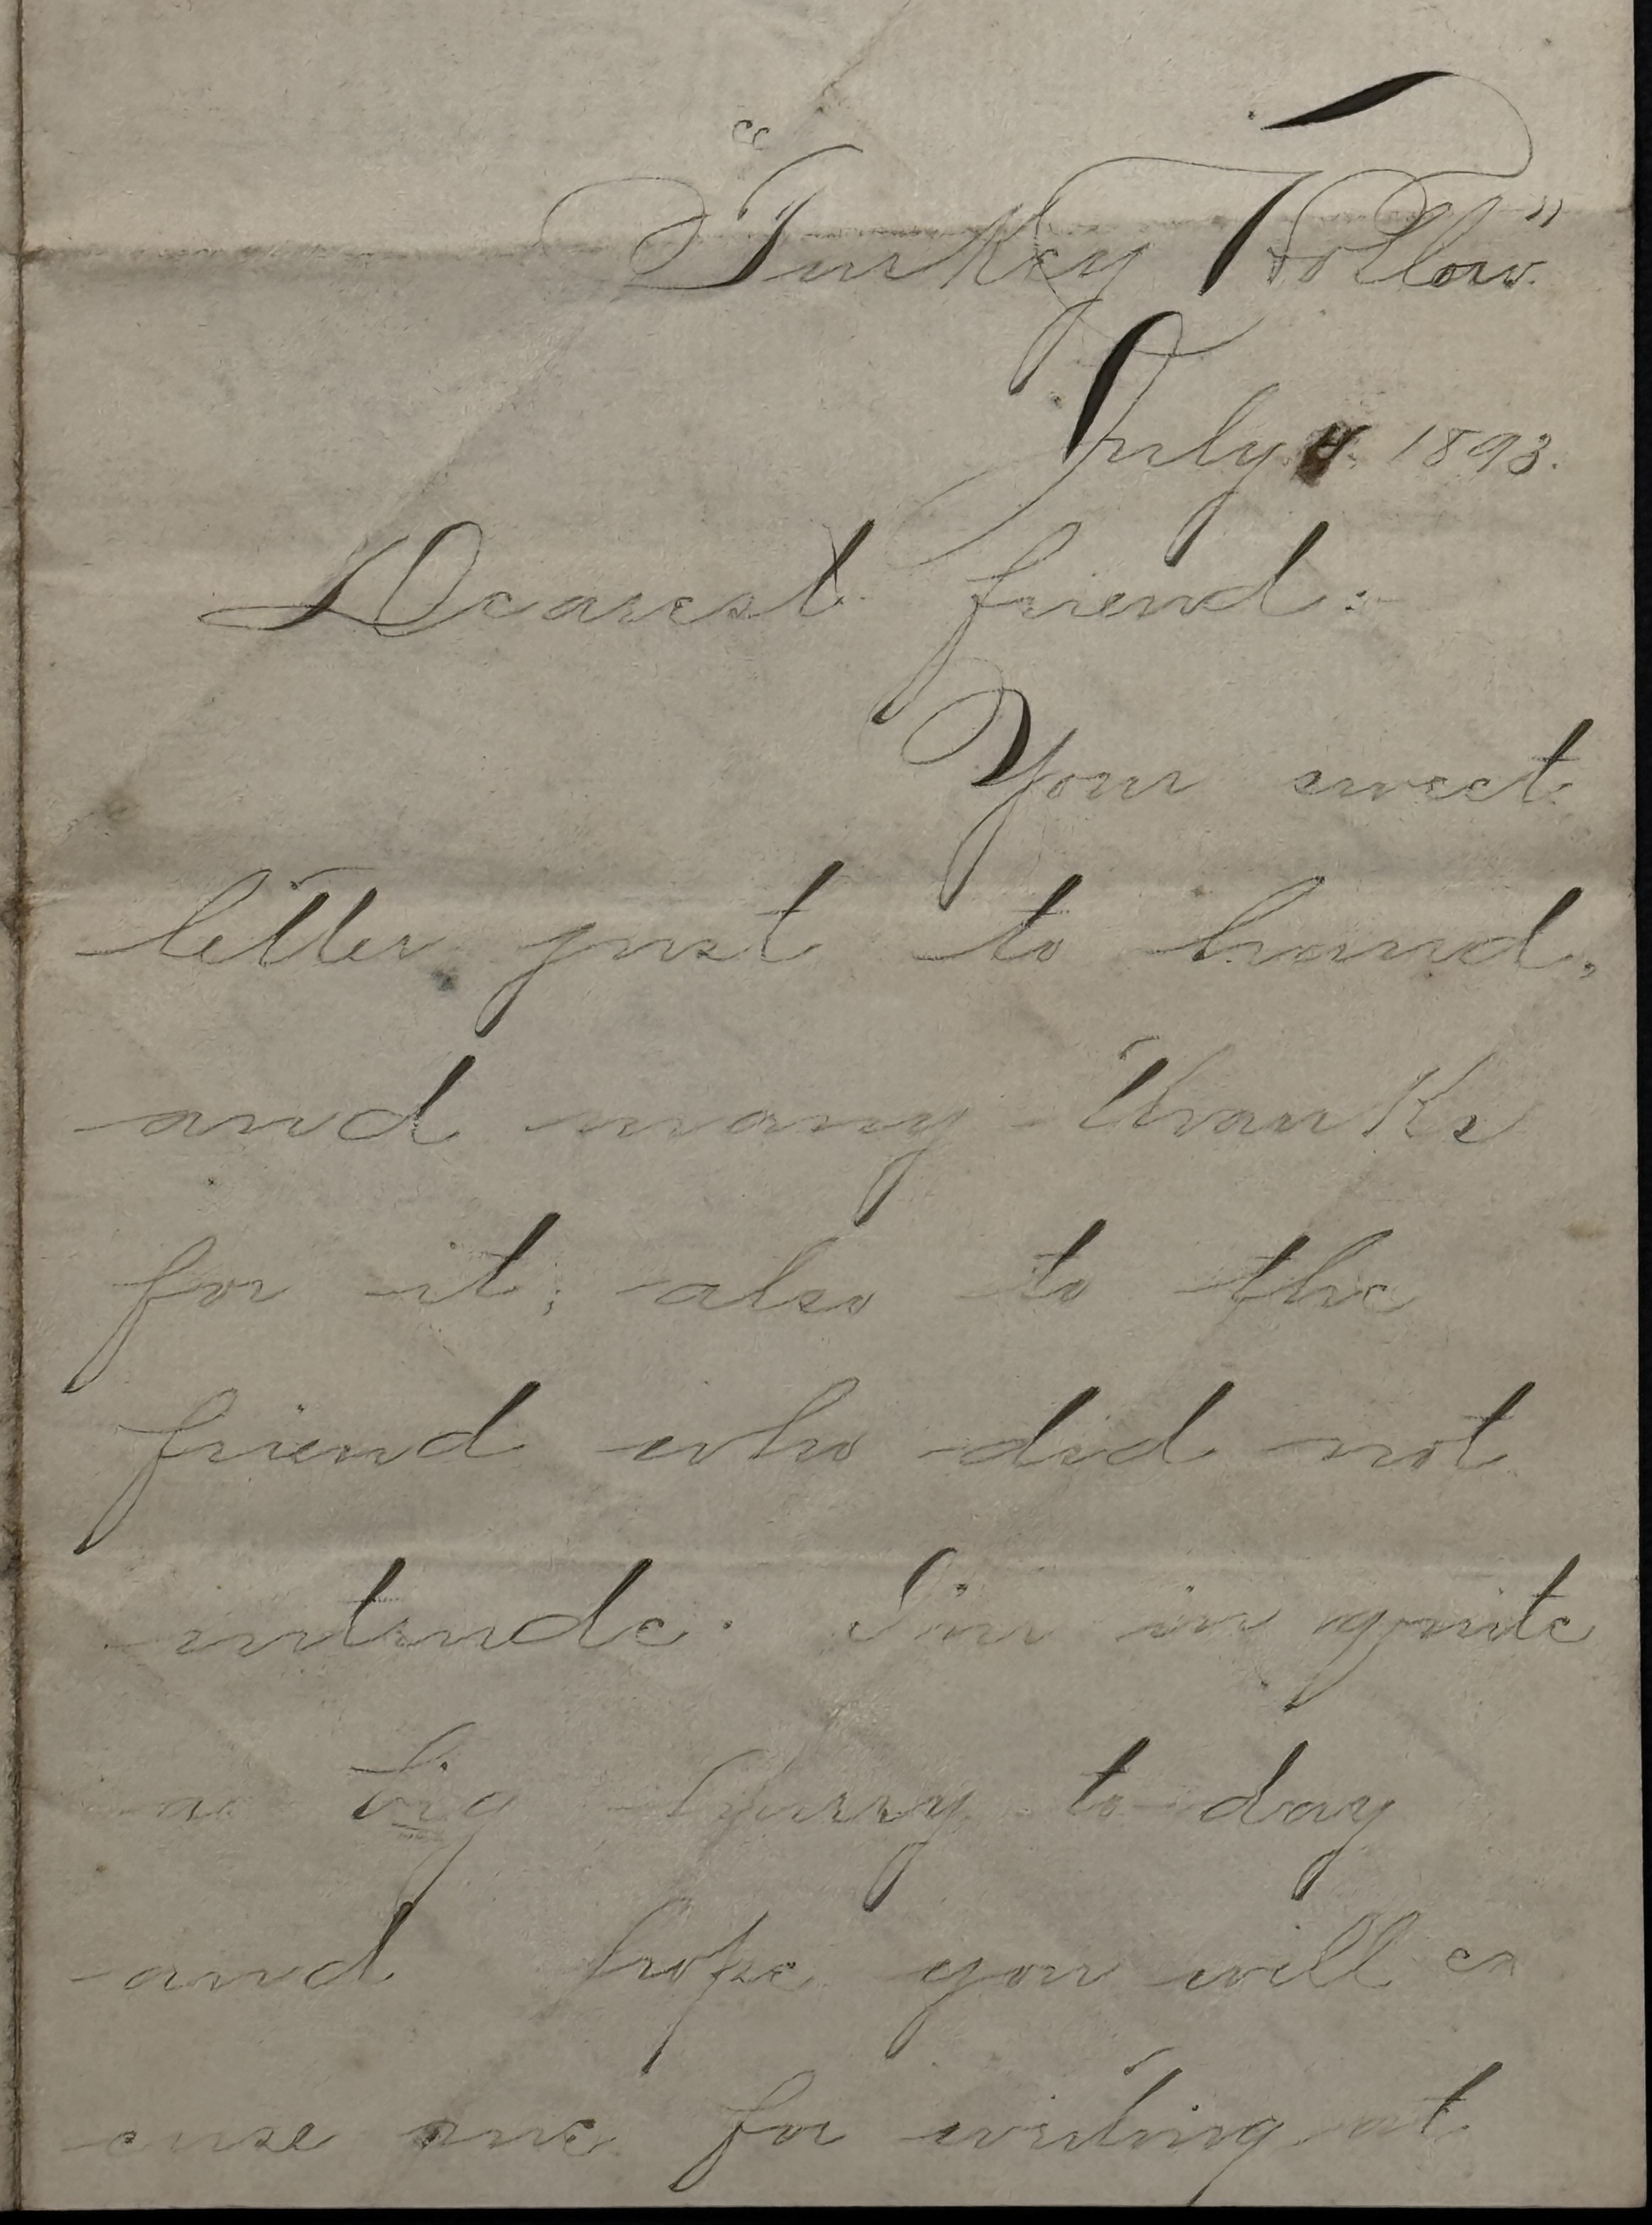 "Turkey Hollow."
July 4. 1893.
Dearest friend:-
Your sweet
letter just to hand,
and many thanks
for it; also to the
friend who did not
intrude. I'm in quite
a big hurry to-day
and hope you will ex
cuse me for writing at